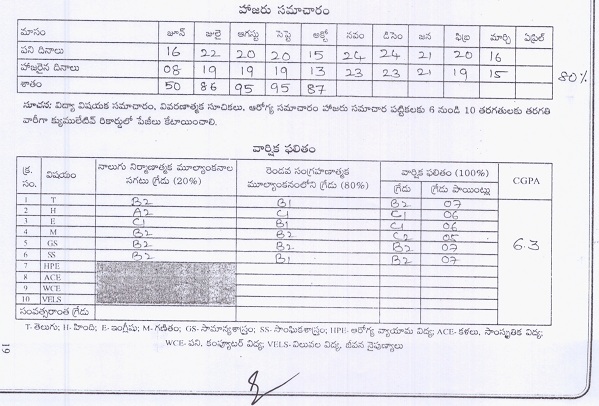 హాజరు సమాచారం
మాసం జూన్ జులై ఆగస్టు సెప్టె అక్టో నవం డిసెం జన ఫిబ్ర మార్చి ఏప్రిల్
పని దినాలు 16 22 20 20 15 24 24 21 20 16
హాజరైన దినాలు 08 19 19 19 13 23 23 21 19 15 80%
శాతం 50 86 95 95 87
సూచన: విద్యా విషయక సమాచారం, వివరణాత్మక సూచికలు, ఆరోగ్య సమాచారం హాజరు సమాచార పట్టికలకు 6 నుండి 10 తరగతులకు తరగతి
వారీగా క్యుములేటివ్ రికార్డులో పేజీలు కేటాయించాలి.
వార్షిక ఫలితం
క్ర. సం. విషయం నాలుగు నిర్మాణాత్మక మూల్యాంకనాల సగటు గ్రేడు (20%) రెండవ సంగ్రహణాత్మక మూల్యాంకనంలోని గ్రేడు (80%) వార్షిక ఫలితం (100%) CGPA
గ్రేడు గ్రేడు పాయింట్లు
1 T B2 B1 B2 07
2 H A2 C1 C1 06
3 E C1 B1 C1 06
4 M B2 B2 C2 05
5 GS B2 B2 B2 07 6.3
6 SS B2 B1 B2 07
7 HPE
8 ACE
9 WCE
10 VELS
సంవత్సరాంత గ్రేడు
T- తెలుగు; H- హింది; E- ఇంగ్లీషు; M- గణితం; GS- సామాన్యశాస్త్రం; SS- సాంఘికశాస్త్రం; HPE- ఆరోగ్య వ్యాయామ విద్య; ACE- కళలు, సాంస్కృతిక విద్య;
WCE- పని, కంప్యూటర్ విద్య; VELS-విలువల విద్య, జీవన నైపుణ్యాలు
19